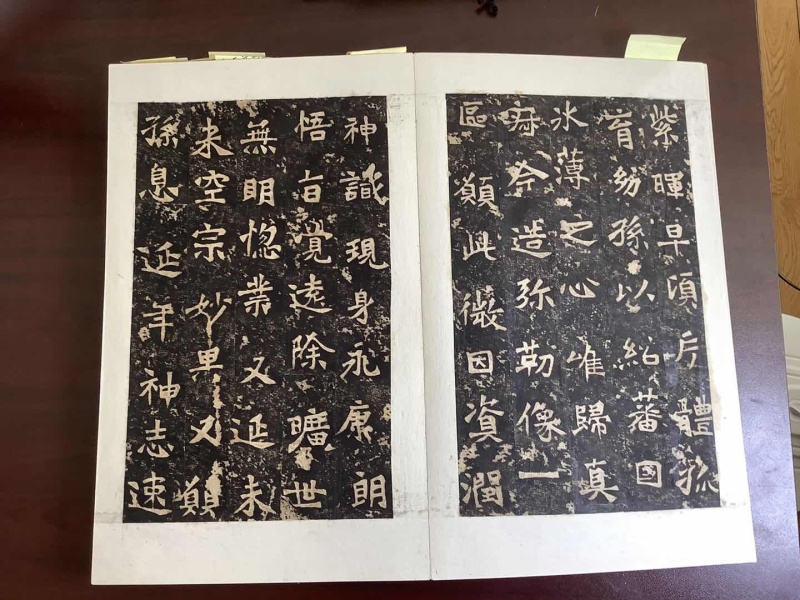 紫暉早頃片體孤
育幼孫以紹蕃国
氷薄之心唯歸真
寂今造弥勒像一
區願此微因資潤
神識現身永康朗
悟旨覺遠除曠世
無明惚業又延未
来空宗妙果又願
孫息延年神志速